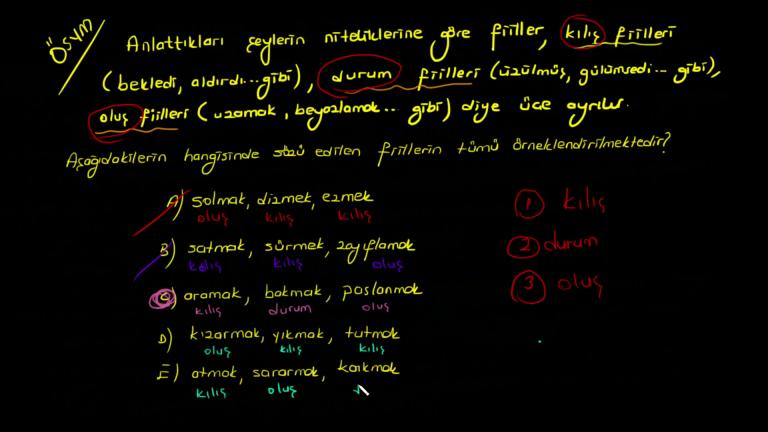 ÖSYM
Anlattıkları şeylerin niteliklerine göre fiiller, kılış fiilleri
(bekledi, aldırdı... gibi), durum fiilleri (üzülmüş, gülümsedi... gibi),
oluş fiilleri (uzamak, beyazlamak... gibi) diye üçe ayrılır.
Aşağıdakilerin hangisinde sözü edilen fiillerin tümü örneklendirilmektedir?
A) solmak, dizmek, ezmek
oluş kılış kılış
B) satmak, sürmek, zayıflamak
kılış kılış oluş
C) aramak, bakmak, paslanmak
kılış durum oluş
D) kızarmak, yıkmak, tutmak
oluş kılış kılış
E) atmak, sararmak, kalkmak
kılış oluş
1. kılış
2 durum
3 oluş